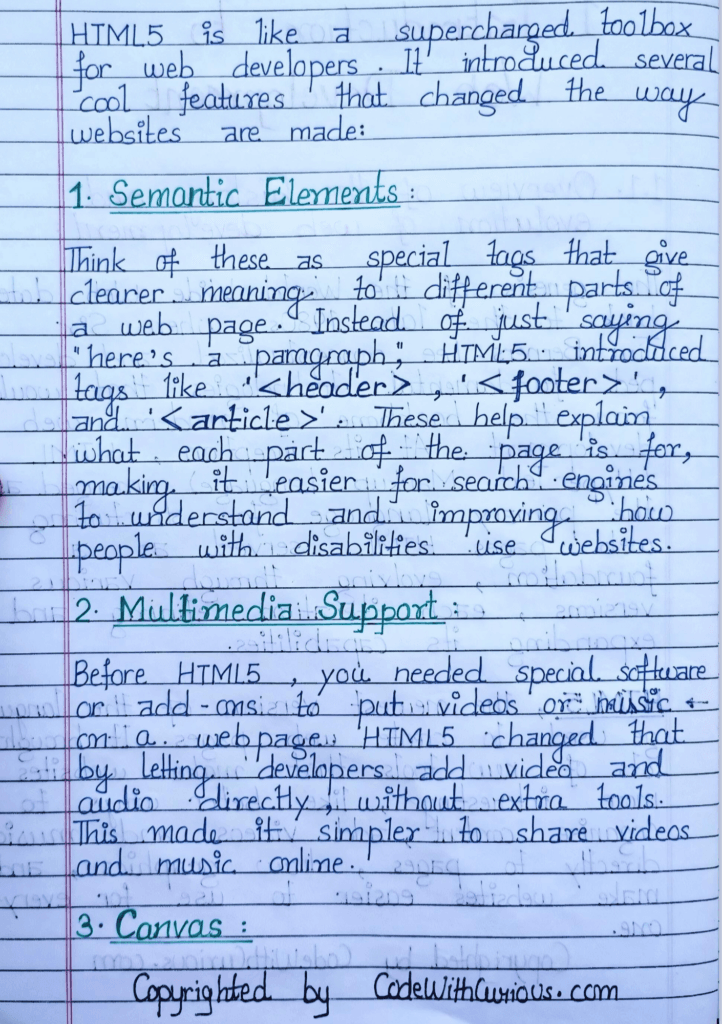 HTML5 is like a supercharged toolbox
for web developers. It introduced several
cool features that changed the way
websites are made:
1. Semantic Elements:
Think of these as special tags that give
clearer meaning to different parts of
a web page. Instead of just saying
"here's a paragraph", HTML5 introduced
tags like '<header>, '<footer>',
and '<article>'. These help explain
what each part of the page is for,
making it easier for search engines
to understand and improving how
people with disabilities use websites.
2. Multimedia Support:
Before HTML5, you needed special software
or add-ons to put videos or music
on a webpage. HTML5 changed that
by letting developers add video and
audio directly, without extra tools.
This made it simpler to share videos
and music online.
3. Canvas:
Copyrighted by CodeWithCurious.com